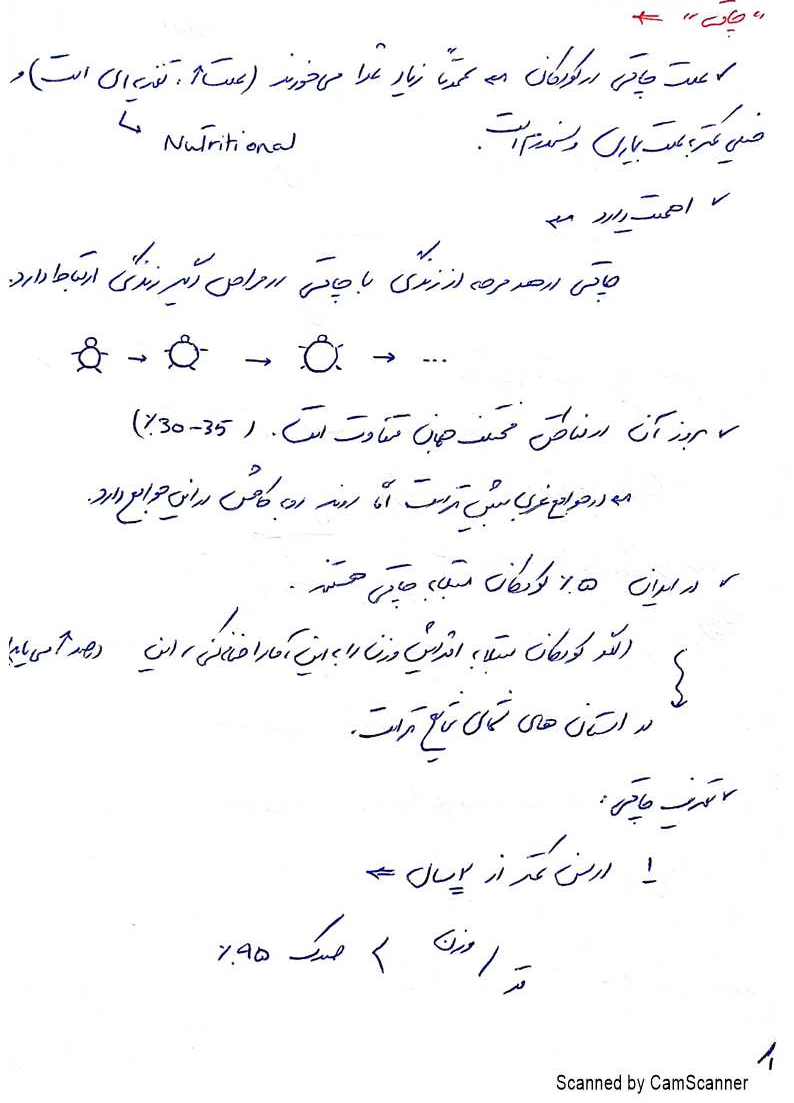 "چاقی" ⇐
✓ علت چاقی در کودکان ← عمدتاً زیاد غذا می‌خورند (علت↑: تغذیه‌ای است) و
Nutritional
خیلی کمتر به علت بیماری و سندرم است.
✓ اهمیت دارد ←
چاقی در هر مرحله از زندگی با چاقی در مراحل دیگر زندگی ارتباط دارد.
→ → → ...
✓ بروز آن در نقاط مختلف جهان متفاوت است. (٪30-35)
← در جوامع غربی بیش‌تر است اما روند رو به کاهش در این جوامع دارد.
✓ در ایران ٪۵ کودکان مبتلا به چاقی هستند.
اگر کودکان مبتلا به افزایش وزن را به این آمار اضافه کنی، این درصد ↑ می‌یابد
در استان های شمالی شایع تر است.
✓ تعریف چاقی:
۱ در سن کمتر از ۲ سال ⇐
وزن / قد > صدک ٪۹۵
۱
Scanned by CamScanner